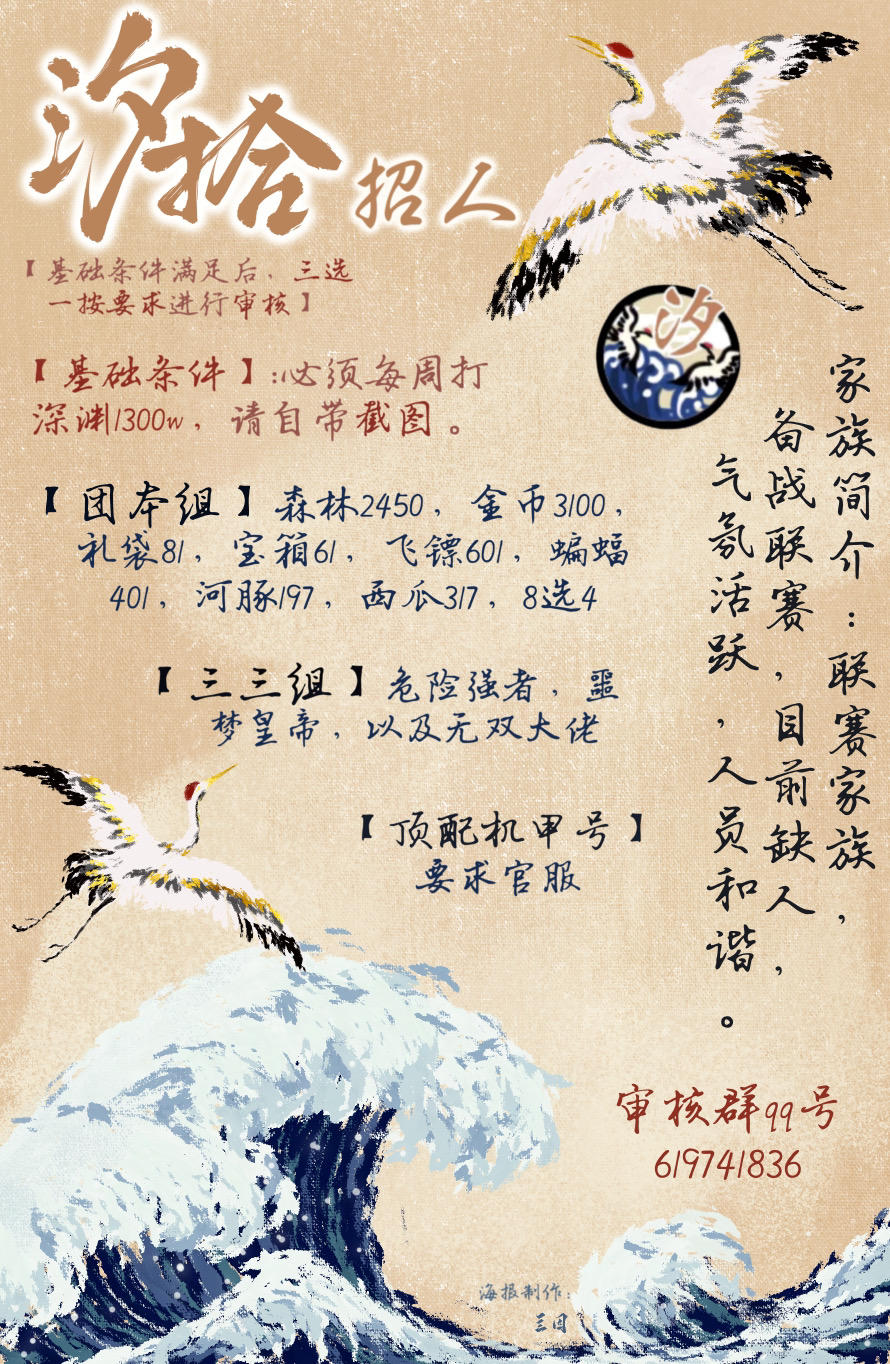 汐拾招人
【基础条件满足后，三选
一按要求进行审核】
汐
【基础条件】:必须每周打
深渊1300w，请自带截图。
【团本组】森林2450，金币3100，
礼袋81，宝箱61，飞镖601，蝙蝠
401，河豚197，西瓜317，8选4
【三三组】危险强者，噩
梦皇帝，以及无双大佬
【顶配机甲号】
要求官服
家族简介：联赛家族，
备战联赛，目前缺人，
气氛活跃，人员和谐。
审核群qq号
619741836
海报制作：
三回